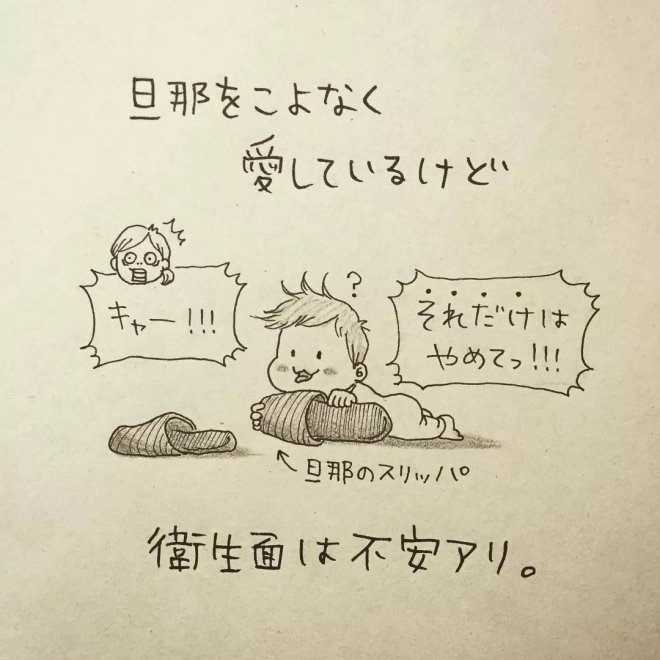 旦那をこよなく
愛しているけど
キャー!!!
?
それだけは
やめてっ!!!
←旦那のスリッパ
衛生面は不安アリ。